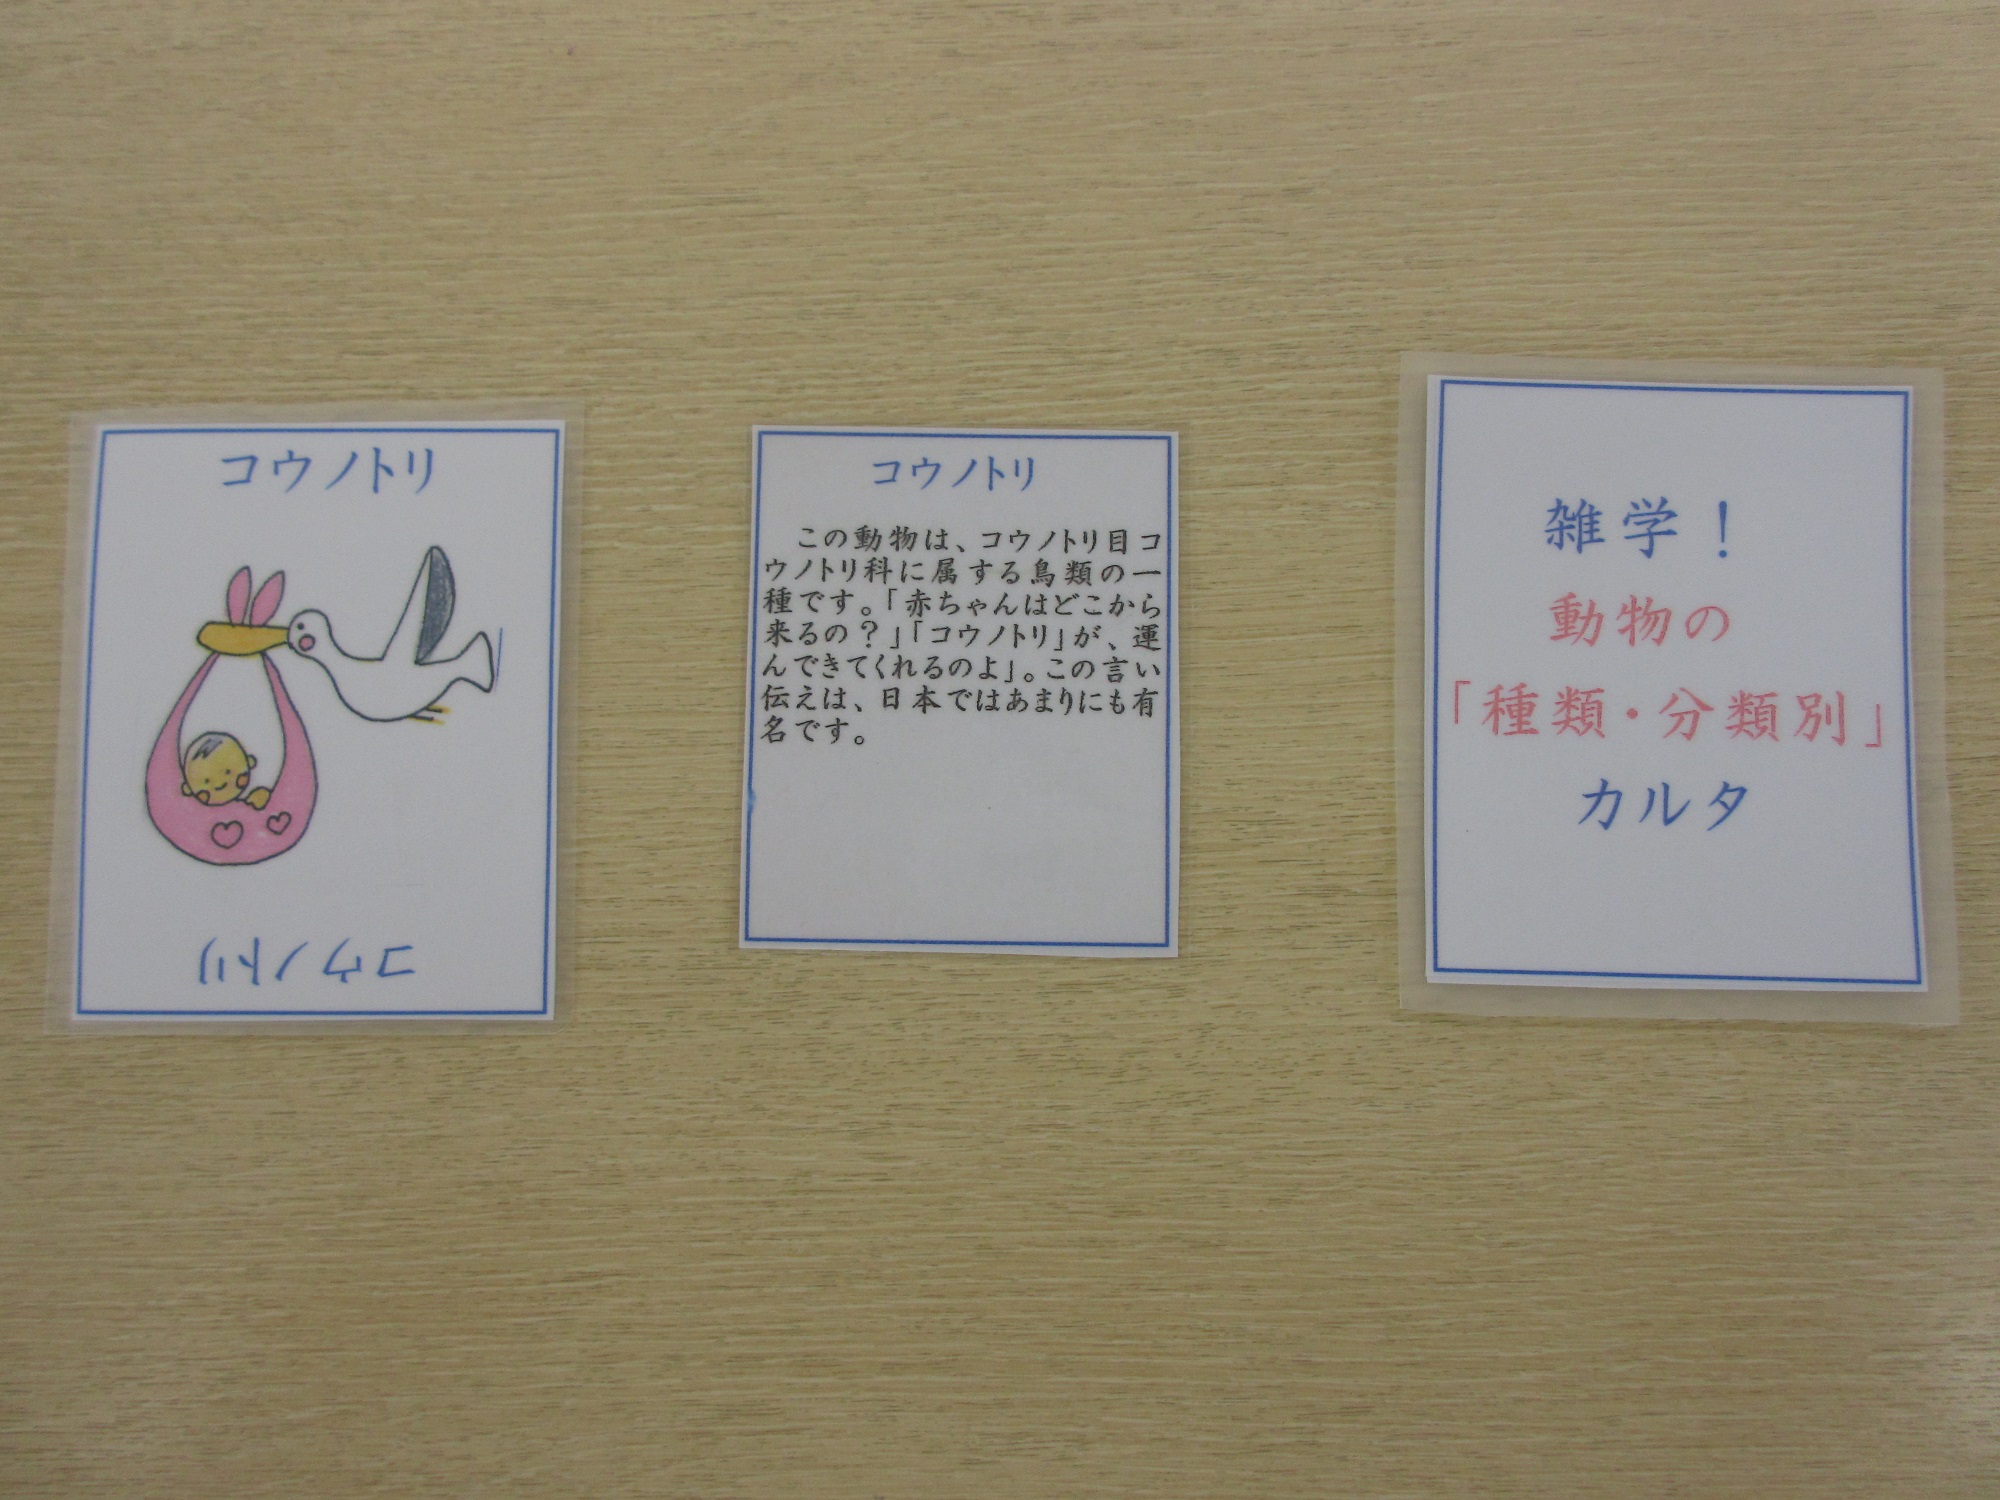 コウノトリ
コウノトリ
コウノトリ
この動物は、コウノトリ目コ
ウノトリ科に属する鳥類の一
種です。「赤ちゃんはどこから
来るの？」「コウノトリ」が、運
んできてくれるのよ」。この言い
伝えは、日本ではあまりにも有
名です。
雑学！
動物の
「種類・分類別」
カルタ